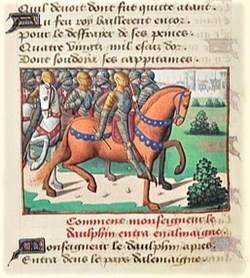 Quil devoit dont fut quicte atant
Au feu roy baillerent encor
Pour le deffrayer de ses pences
Quatre vingts mil escuz dor
Dont souldoia ses cappitaines
Comment monseigneur le
daulphin entra en almaigne
Monseigneur le daulphin apres
Entra dens le pays dalemaigne